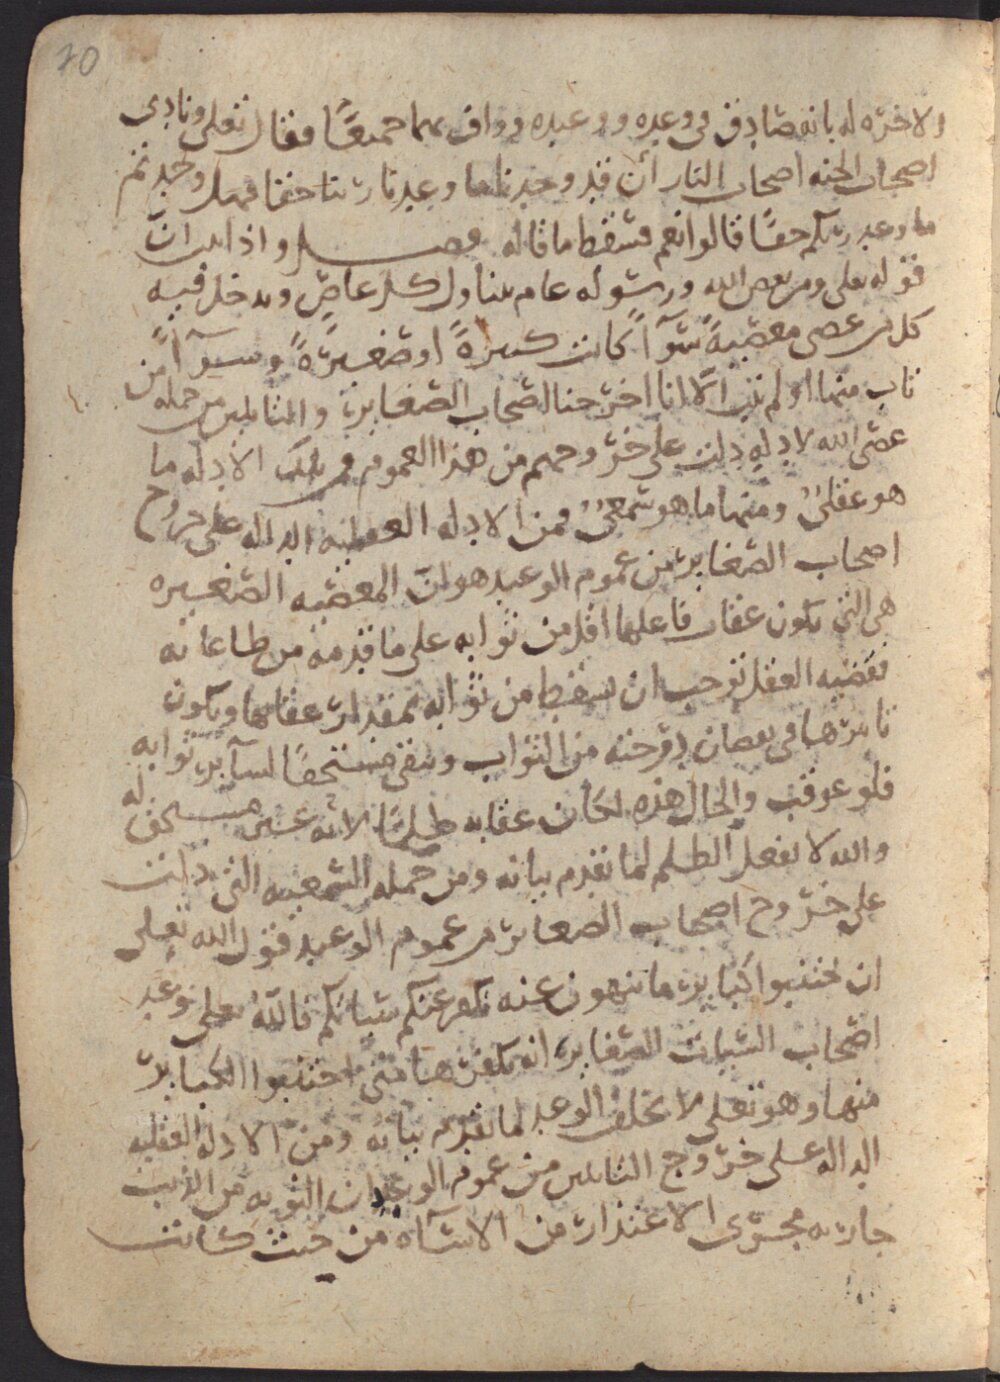 20
والاخره له بانه صادق في وعده ووعيده وواف بهما جميعًا فقال تعلى ونادى
اصحاب الجنه اصحاب النار أن قد وجدنا ما وعدنا ربنا حقا فهل وجدتم
ما وعد ربكم حقًا قالوا نعم فسقط ما قاله فصل واذا ثبت انّ
قوله تعلى ومن يعص الله ورسوله عام يتناول كل عاصٍ ويدخل فيه
كل من عصى معصيةً سوآًا كانت كبيرةً او صغيرةً وسوآًا من
تاب منها او لم يتب الّا انا اخرجنا اصحاب الصغاير والتايبين من جمله من
عصى الله لادلهٍ دلت على خروجهم من هذا العموم فمن تلك الادله ما
هو عقليٌ ومنها ما هو سمعيٌ فمن الادله العقليه الداله على خروج
اصحاب الصغاير من عموم الوعيد هو ان المعصيه الصغيره
هي التي يكون عقاب فاعلها اقل من ثوابه على ما قدمه من طاعاته
فقضيه العقل توجب ان يسقط من ثوابه بمقدار عقابها ويكون
تاثيرها في نقصان درجته من الثواب ويبقى مستحقًا لساير ثوابه
فلو عوقب والحال هذه لكان عقابه ظلمًا لانه غير مستحق له
والله لا يفعل الظلم لما تقدم بيانه ومن جمله السمعيه التي دلت
على خروج اصحاب الصغاير من عموم الوعيد قول الله تعلى
ان تجتنبوا كباير ما تنهون عنه نكفر عنكم سياتكم فالله تعلى توعد
اصحاب السيات الصغاير انه يكفرها متى اجتنبوا الكباير
منها وهو تعلى لا يخلف الوعد لما تقدم بيانه ومن الادله العقليه
الداله على خروج التايبين من عموم الوعيد ان التوبه من الذنب
جاريه مجرى الاعتذار من الاسآه من حيث كانت